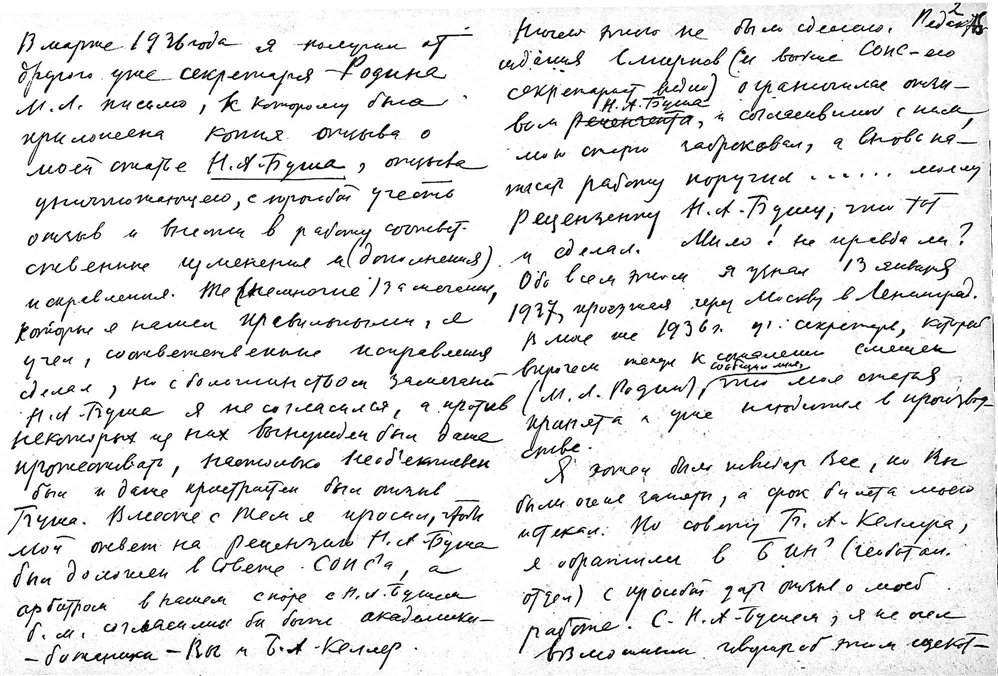 В марте 1936 года я получил от
другого уже секретаря - Родина
М.Л. письмо, к которому была
приложена копия отзыва о
моей статье Н.А. Буша, отзыва
уничтожающего, с просьбой учесть
отзыв и внести в работу соответ-
ственные изменения и (дополнения)
исправления. Те (немногие) замечания,
которые я нашел правильными, я
учел, соответственные исправления
сделал, но с большинством замечаний
Н.А. Буша я не согласился, а против
некоторых из них вынужден был даже
протестовать, настолько необъективен
был и даже пристрастен был отзыв
Буша. Вместе с тем я просил, чтобы
мой ответ на рецензию Н.А. Буша
был доложен в Совете СОПС'а, а
арбитром в нашем споре с Н.А. Бушем
б.м. согласились бы быть академики-
-ботаники - Вы и Б.А. Келлер.
2
Ничего этого не было сделано. Редактор
издания Смирнов (и вы СОПС- его
секретариат видно) ограничился отзы-
Н.А. Буша
вом рецензента, и согласившись с ним,
мою статью забраковал, а вновь на-
писать работу поручил ...... моему
рецензенту Н.А. Бушу, что тот
и сделал. Мило! не правда ли?
Обо всем этом я узнал 13 января
1937, проезжая через Москву в Ленинград.
В мае же 1936 г. уч. секретарь, который
впрочем теперь к сожалению смещен
сообщил мне,
(М.Л. Родин), что моя статья
принята и уже находится в производ-
стве.
Я хотел было повидать Вас, но Вы
были очень заняты, а срок билета моего
истекал. По совету Б.А. Келлера,
я обратился в БИН (геоботан.
отдел) с просьбой дать отзыв о моей
работе. С Н.А. Бушем, я не счел
возможным говорить об этом щекот-